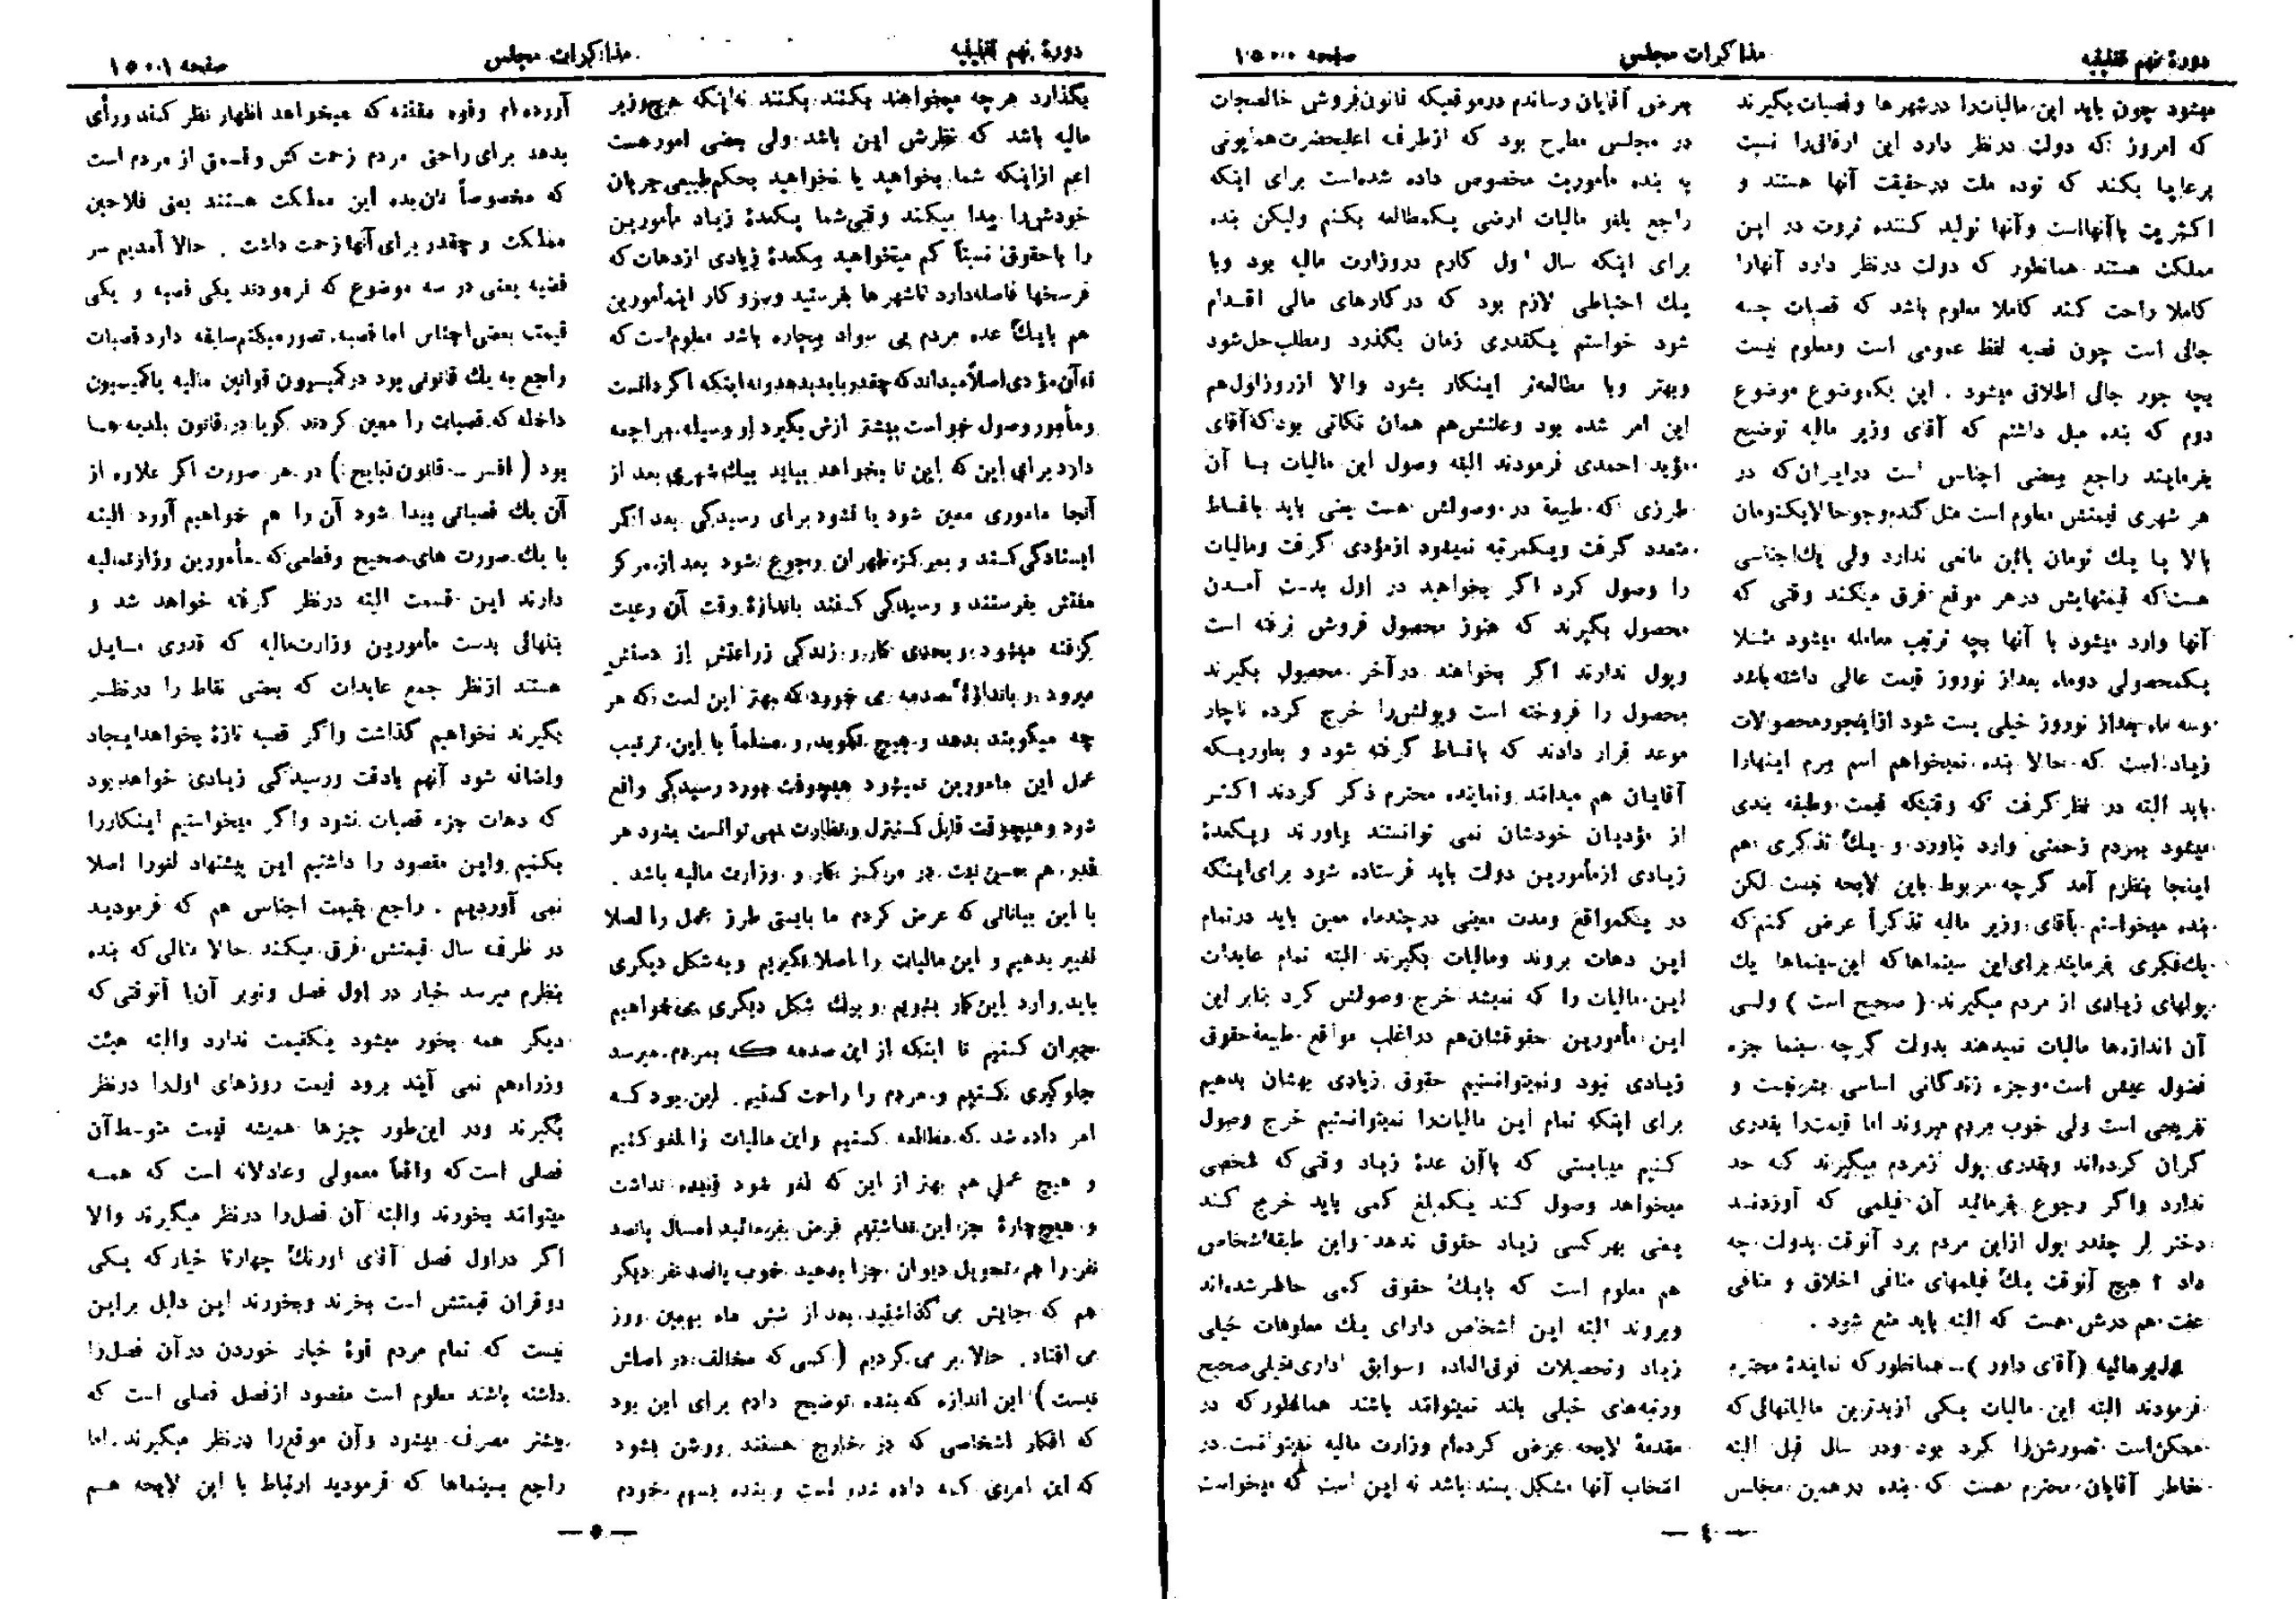 دورهٔ نهم تقنینیه
مذاکرات مجلس
صفحه ۱۵۰۰
میشود چون باید این مالیات‌را درشهرها وقصبات بگیرند
که امروز که دولت درنظر دارد این ارفاق‌را نسبت
برعایا بکند که توده ملت درحقیقت آنها هستند و
اکثریت باآنهااست وآنها تولید کننده ثروت در این
مملکت هستند همانطور که دولت درنظر دارد آنهارا
کاملا راحت کند کاملا معلوم باشد که قصبات چه
جائی است چون قصبه لفظ عمومی است ومعلوم نیست
بچه جور جائی اطلاق میشود . این یکموضوع موضوع
دوم که بنده میل داشتم که آقای وزیر مالیه توضیح
بفرمایند راجع ببعضی اجناس است درایران‌که در
هر شهری قیمتش معلوم است مثل گندم‌وجوحالایکتومان
بالا یا یك تومان پائین مانعی ندارد ولی یك‌اجناسی
هست‌که قیمتهایش درهر موقع فرق میکند وقتی که
آنها وارد میشود با آنها بچه ترتیب معامله میشود مثلا
یکمحصولی دوماه بعداز نوروز قیمت عالی داشته باشد
وسه ماه بعداز نوروز خیلی پست شود ازاینجورمحصولات
زیاد است که حالا بنده نمیخواهم اسم ببرم اینهارا
باید البته در نظر گرفت که وقتیکه قیمت وطبقه بندی
میشود بمردم زحمتی وارد نیاورد و یك تذکری هم
اینجا بنظرم آمد گرچه مربوط باین لایحه نیست لکن
بنده میخواستم بآقای وزیر مالیه تذکراً عرض کنم‌که
یك‌فکری بفرمایند برای‌این سینماها که این‌سینماها یك
پولهای زیادی از مردم میگیرند ( صحیح است ) ولی
آن اندازه‌ها مالیات نمیدهند بدولت گرچه سینما جزء
فضول عیش است وجزء زندگانی اساسی بشرنیست و
تفریحی است ولی خوب مردم میروند اما قیمت‌را بقدری
گران کرده‌اند وبقدری پول ازمردم میگیرند که حد
ندارد واگر رجوع بفرمائید آن فیلمی که آوردند
دختر لر چقدر پول ازاین مردم برد آنوقت بدولت چه
داد ؟ هیچ آنوقت یك فیلمهای منافی اخلاق و منافی
عفت هم درش هست که البته باید منع شود .
وزیرمالیه (آقای داور )ـ همانطورکه نمایندهٔ محترم
فرمودند البته این مالیات یکی ازبدترین مالیاتهائی‌که
ممکن‌است تصورش‌را کرد بود ودر سال قبل البته
خاطر آقایان محترم هست که بنده درهمین مجلس
بعرض آقایان رساندم درموقعیکه قانون‌فروش خالصجات
در مجلس مطرح بود که ازطرف اعلیحضرت‌همایونی
به بنده مأموریت مخصوص داده شده‌است برای اینکه
راجع بلغو مالیات ارضی یکمطالعه بکنم ولیکن بنده
برای اینکه سال اول کارم دروزارت مالیه بود وبا
یك احتیاطی لازم بود که درکارهای مالی اقدام
شود خواستم یکقدری زمان بگذرد ومطلب‌حل‌شود
وبهتر وبا مطالعه‌تر اینکار بشود والا ازروزاول‌هم
این امر شده بود وعلتش‌هم همان نکاتی بودکه‌آقای
مؤید احمدی فرمودند البته وصول این مالیات با آن
طرزی که طبیعة در وصولش هست یعنی باید باقساط
متعدد گرفت ویکمرتبه نمیشود ازمؤدی گرفت ومالیات
را وصول کرد اگر بخواهید در اول بدست آمدن
محصول بگیرند که هنوز محصول فروش نرفته است
وپول ندارند اگر بخواهند درآخر محصول بگیرند
محصول را فروخته است وپولش‌را خرج کرده ناچار
موعد قرار دادند که باقساط گرفته شود و بطوریکه
آقایان هم میدانند ونماینده محترم ذکر کردند اکثر
از مؤدیان خودشان نمی توانستند بیاورند ویکعدهٔ
زیادی ازمأمورین دولت باید فرستاده شود برای‌اینکه
در یکمواقع ومدت معینی درچندماه معین باید درتمام
این دهات بروند ومالیات بگیرند البته تمام عایدات
این مالیات را که نمیشد خرج وصولش کرد بنابر این
این مأمورین حقوقشان‌هم دراغلب مواقع طبیعةحقوق
زیادی نبود ونمیتوانستیم حقوق زیادی بهشان بدهیم
برای اینکه تمام این مالیات‌را نمیتوانستیم خرج وصول
کنیم میبایستی که باآن عدهٔ زیاد وقتی‌که شخصی
میخواهد وصول کند یکمبلغ کمی باید خرج کند
یعنی بهرکسی زیاد حقوق ندهد واین طبقه‌اشخاص
هم معلوم است که بایك حقوق کمی حاضرشده‌اند
وبروند البته این اشخاص دارای یك معلومات خیلی
زیاد وتحصیلات فوق‌العاده وسوابق اداری‌خیلی‌صحیح
ورتبه‌های خیلی بلند نمیتواند باشند همانطورکه در
مقدمهٔ لایحه عرض کرده‌ام وزارت مالیه نمیتوانست در
انتخاب آنها مشکل پسند باشد نه این است که میخواست
— ٤ —
دورهٔ نهم تقنینیه
مذاکرات مجلس
صفحه ۱۵۰۱
بگذارد هرچه میخواهند بکنند بکنند نه‌اینکه هیچ‌وزیر
مالیه باشد که نظرش این باشد ولی بعضی امورهست
اعم ازاینکه شما بخواهید یا نخواهید بحکم‌طبیعی‌جریان
خودش‌را پیدا میکند وقتی‌شما یکعدهٔ زیاد مأمورین
را باحقوق نسبتاً کم میخواهید بیکعدهٔ زیادی ازدهات‌که
فرسخها فاصله‌دارد تاشهرها بفرستید وسروکار این‌مأمورین
هم بایك عده مردم بی سواد بیچاره باشد معلوم‌است‌که
نه‌آن‌مؤدی‌اصلاًمیداندکه‌چقدربایدبدهدونه‌اینکه اگردانست
ومأموروصول خواست بیشتر ازش بگیرد او وسیله‌مراجعه
دارد برای این که این تا بخواهد بیاید بیك‌شهری بعد از
آنجا ماموری معین شود یا نشود برای رسیدگی بعد اگر
ایستادگی کنند و بمرکز طهران رجوع شود بعد ازمرکز
مفتش بفرستند و رسیدگی کنند باندازهٔ وقت آن رعیت
گرفته میشود وبحدی کار و زندگی زراعتش از دستش
میرود و باندازهٔ صدمه می خورد که بهتر این است که هر
چه میگویند بدهد و هیچ نگوید و مسلماً با این ترتیب
عمل این مامورین نمیشود هیچوقت مورد رسیدگی واقع
شود وهیچوقت قابل کنترل ونظارت نمی توانست بشود هر
قدر هم حسن نیت در مرکز کار و وزارت مالیه باشد .
با این بیاناتی که عرض کردم ما بایستی طرز عمل را اصلا
تغییر بدهیم و این مالیات را اصلا نگیریم وبه‌شکل دیگری
باید وارد این‌کار بشویم و بیك شکل دیگری می‌خواهیم
جبران کنیم تا اینکه از این صدمه که بمردم میرسد
جلوگیری کنیم و مردم را راحت کنیم . این بود که
امر داده شد که مطالعه کنیم واین مالیات را لغو کنیم
و هیچ عملی هم بهتر از این که لغو شود فایده نداشت
و هیچ‌چارهٔ جز این‌نداشتیم فرض بفرمائید امسال پانصد
نفر را هم تحویل دیوان جزا بدهید خوب پانصدنفر دیگر
هم که جایش می گذاشتید بعد از شش ماه بهمین روز
می افتاد . حالا بر می گردیم (کسی که مخالف در اساس
نیست) این اندازه که بنده توضیح دادم برای این بود
که افکار اشخاصی که در خارج هستند روشن بشود
که این امری که داده شده است و بنده بسهم خودم
آورده‌ام وقوه مقننه که میخواهد اظهار نظر کند ورأی
بدهد برای راحتی مردم زحمت کش وقسمتی از مردم است
که مخصوصاً نان‌بده این مملکت هستند یعنی فلاحین
مملکت و چقدر برای آنها زحمت داشت . حالا آمدیم سر
قضیه یعنی در سه موضوع که فرمودند یکی قصبه و یکی
قیمت بعضی‌اجناس اما قصبه تصورمیکنم‌سابقه دارد قصبات
راجع به یك قانونی بود درکمیسیون قوانین مالیه یاکمیسیون
داخله که قصبات را معین کردند گویا در قانون بلدیه‌ها
بود ( افسر ــ قانون نبایح ) در هر صورت اگر علاوه از
آن یك قصباتی پیدا شود آن را هم خواهیم آورد البته
با یك صورت های صحیح وقطعی‌که مأمورین وزارتمالیه
دارند این قسمت البته درنظر گرفته خواهد شد و
بتنهائی بدست مأمورین وزارت‌مالیه که قدری مسایل
هستند ازنظر جمع عایدات که بعضی نقاط را درنظر
بگیرند نخواهیم گذاشت واگر قصبه تازهٔ بخواهدایجاد
واضافه شود آنهم بادقت ورسیدگی زیادی خواهدبود
که دهات جزء قصبات نشود واگر میخواستیم اینکاررا
بکنیم واین مقصود را داشتیم این پیشنهاد لغورا اصلا
نمی آوردیم . راجع بقیمت اجناس هم که فرمودید
در ظرف سال قیمتش فرق میکند حالا مثالی که بنده
بنظرم میرسد خیار در اول فصل ونوبر آن‌با آنوقتی‌که
دیگر همه بخور میشود یکقیمت ندارد والبته هیئت
وزراءهم نمی آیند برود قیمت روزهای اول‌را درنظر
بگیرند ودر این‌طور چیزها همیشه قیمت متوسط‌آن
فصلی است‌که واقعاً معمولی وعادلانه است که همه
میتواند بخورند والبته آن فصل‌را درنظر میگیرند والا
اگر دراول فصل آقای اورنك چهارتا خیارکه یکی
دوقران قیمتش است بخرند وبخورند این دلیل براین
نیست که تمام مردم قوهٔ خیار خوردن درآن فصل‌را
داشته باشند معلوم است مقصود ازفصل فصلی است که
بیشتر مصرف میشود وآن موقع‌را درنظر میگیرند اما
راجع بسینماها که فرمودید ارتباط با این لایحه هم
— ٥ —